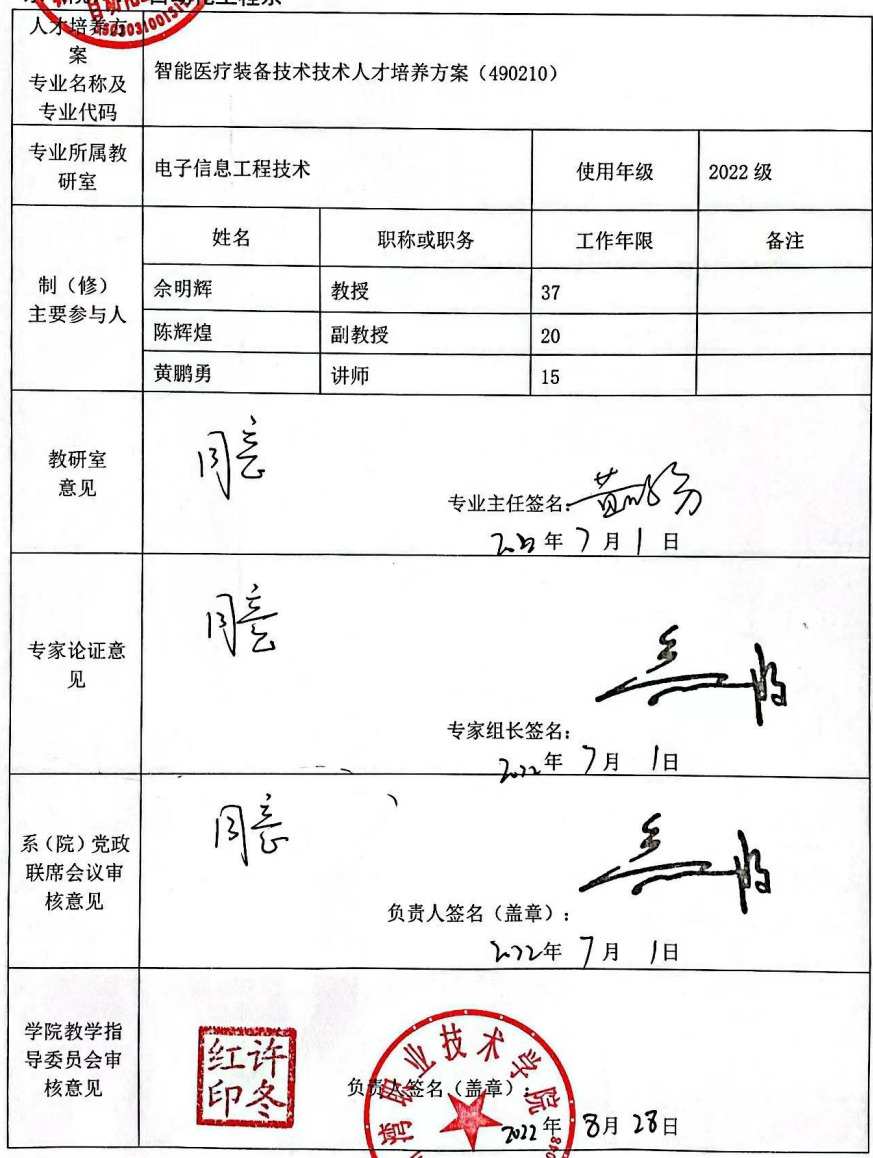 自动化工程系
4503031001513
人才培养方
案
专业名称及
专业代码
智能医疗装备技术技术人才培养方案（490210）
专业所属教
研室
电子信息工程技术
使用年级
2022 级
制（修）
主要参与人
姓名
职称或职务
工作年限
备注
佘明辉
教授
37
陈辉煌
副教授
20
黄鹏勇
讲师
15
教研室
意见
同意
专业主任签名:
黄鹏勇
2022年 7 月 1 日
专家论证意
见
同意
专家组长签名:
2022年 7月 1日
系（院）党政
联席会议审
核意见
同意
负责人签名（盖章）:
2022年 7月 1日
学院教学指
导委员会审
核意见
许冬
红印
职业技术学院
负责人签名（盖章）:
2022年 8月 28日